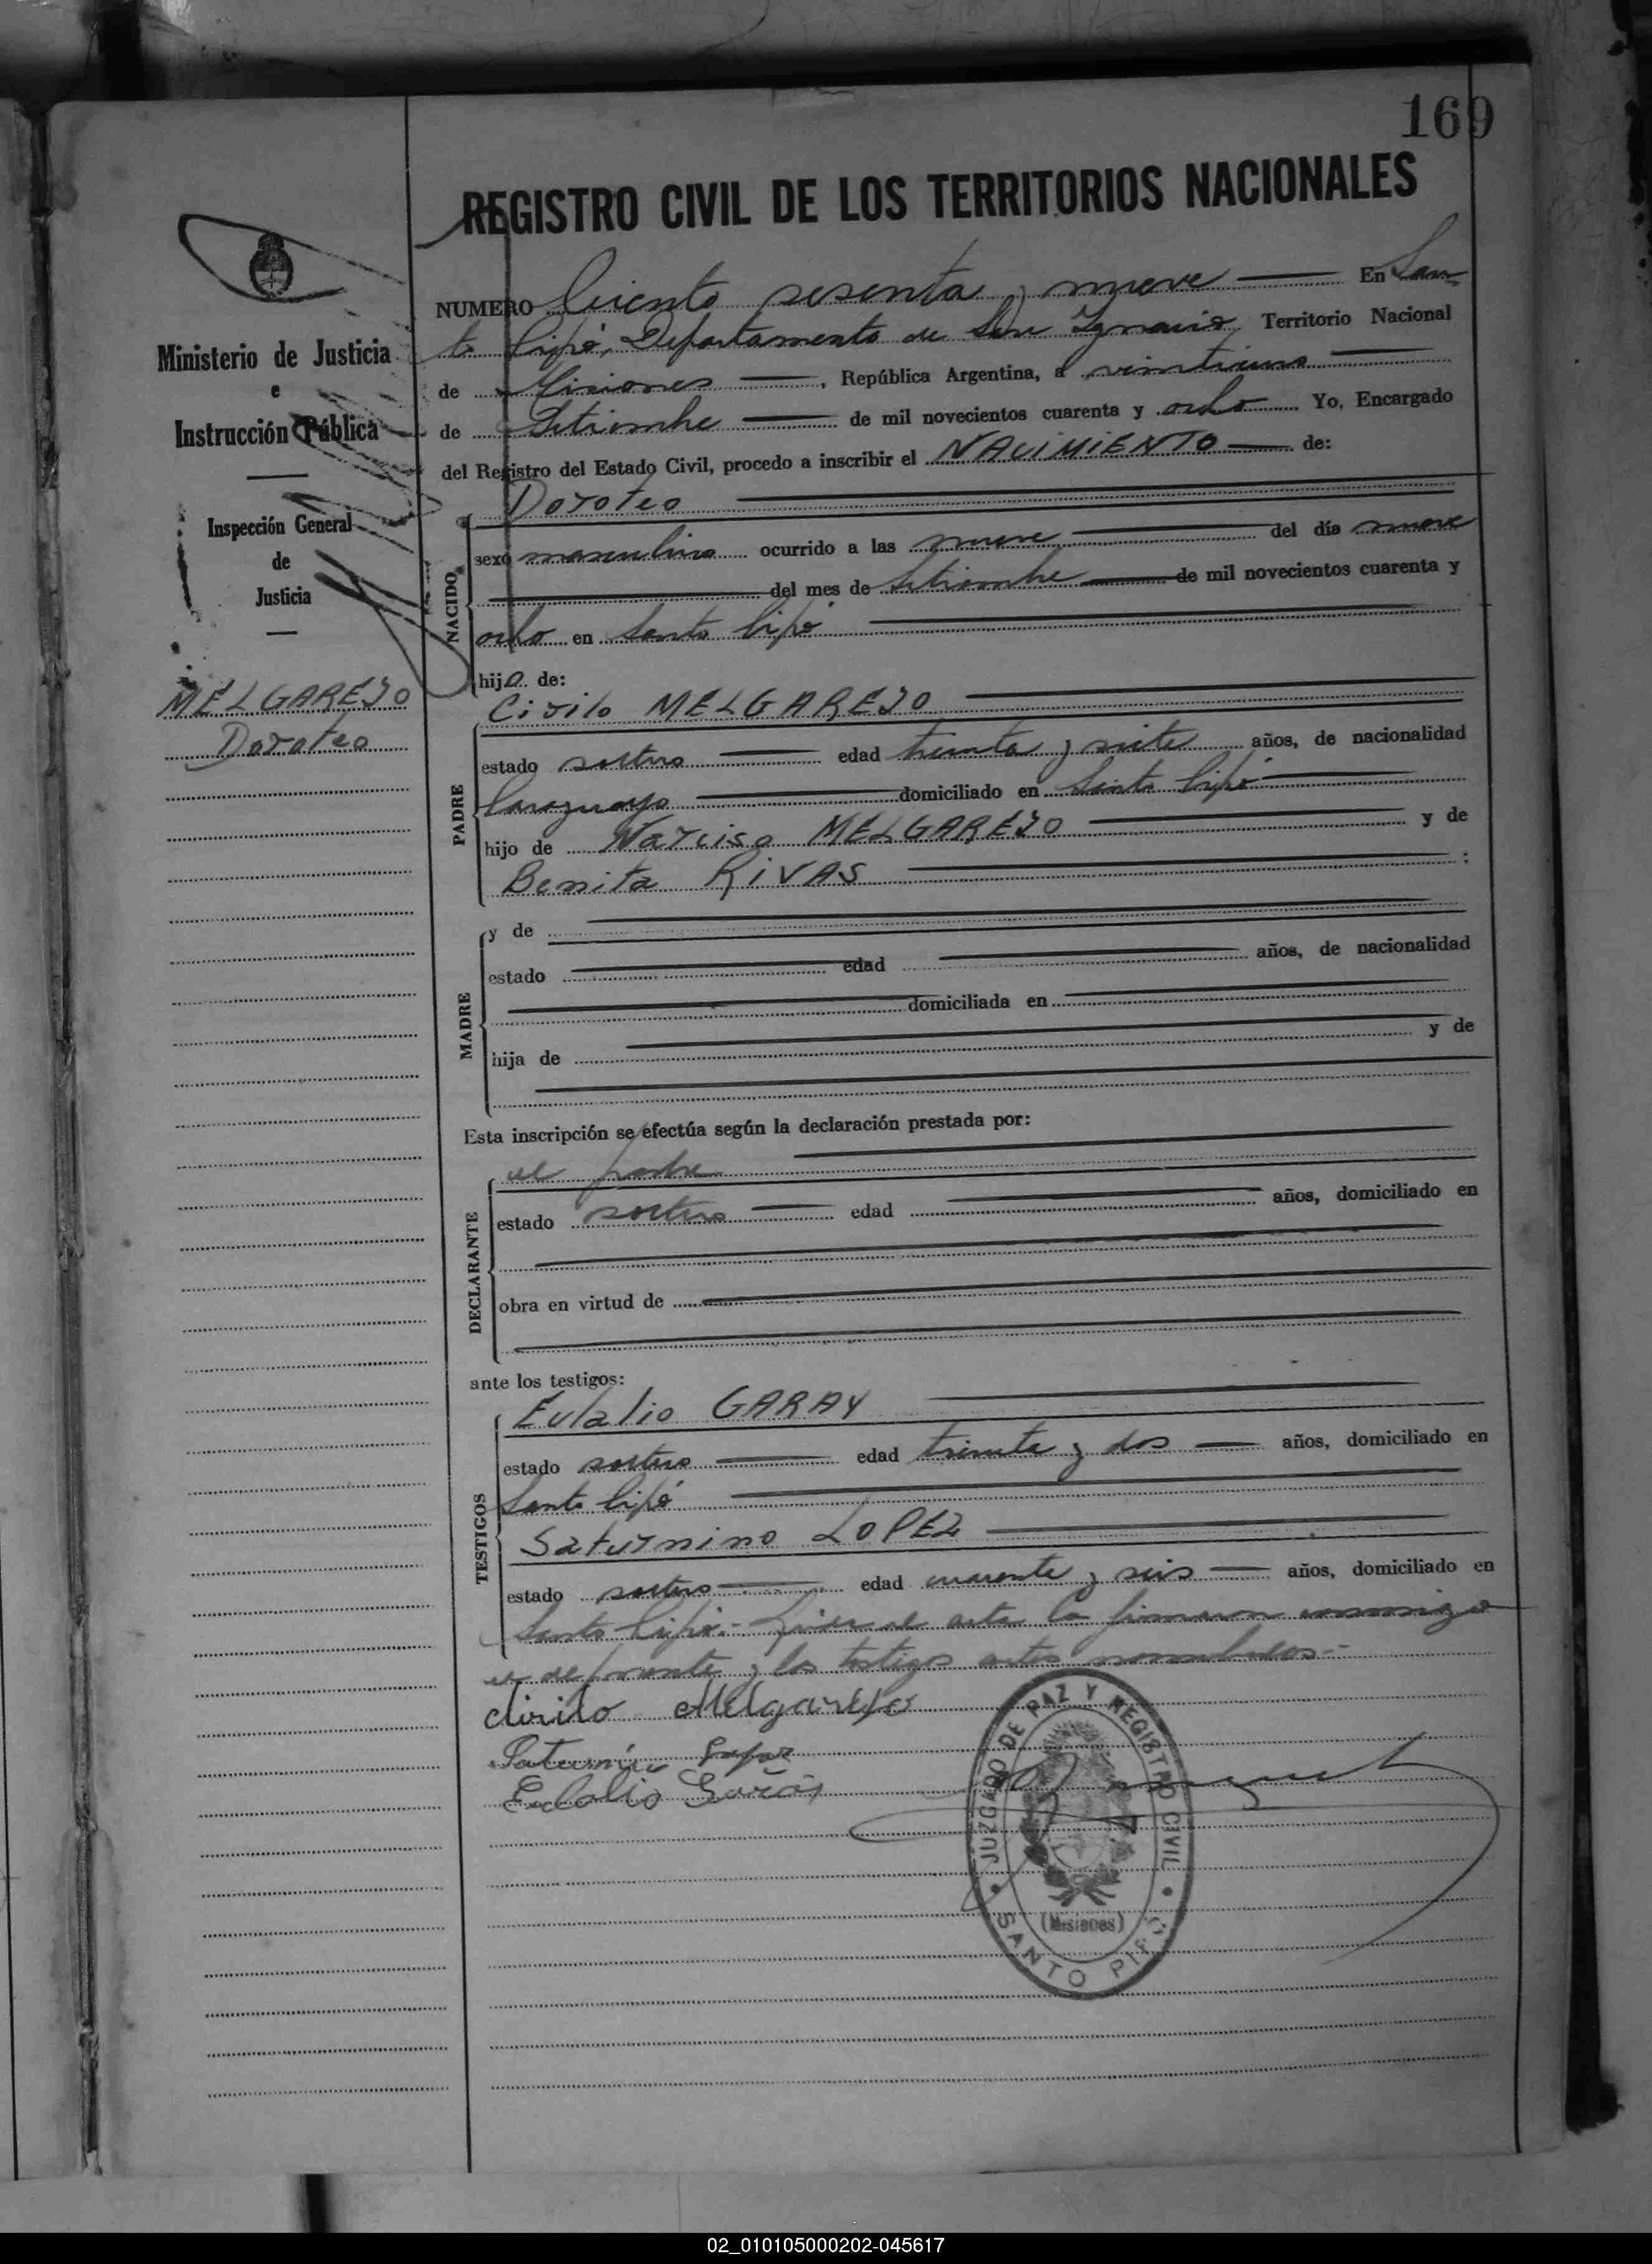 169
REGISTRO CIVIL DE LOS TERRITORIOS NACIONALES
Ministerio de Justicia
e
Instrucción Pública
Inspección General
de
Justicia
MELGAREJO
Doroteo
NUMERO Ciento sesenta y nueve En San
to Pipó, Departamento de San Ignacio, Territorio Nacional
de Misiones, República Argentina, a veintiuno
de Setiembre de mil novecientos cuarenta y ocho Yo, Encargado
del Registro del Estado Civil, procedo a inscribir el NACIMIENTO de:
NACIDO
Doroteo
sexo masculino ocurrido a las nueve del día nueve
del mes de Setiembre de mil novecientos cuarenta y
ocho en Santo Pipó
hijo de:
PADRE
Cirilo MELGAREJO
estado soltero edad treinta y siete años, de nacionalidad
Paraguayo domiciliado en Santo Pipó
hijo de Narciso MELGAREJO y de
Benita RIVAS :
MADRE
y de
estado edad años, de nacionalidad
domiciliada en
hija de y de
Esta inscripción se efectúa según la declaración prestada por:
DECLARANTE
el padre
estado soltero edad años, domiciliado en
obra en virtud de
ante los testigos:
TESTIGOS
Eulalio GARAY
estado soltero edad treinta y dos años, domiciliado en
Santo Pipó
Saturnino LOPEZ
estado soltero edad cuarenta y seis años, domiciliado en
Santo Pipó.- Leída el acta la firmaron conmigo
el declarante y los testigos antes nombrados.-
Cirilo Melgarejo
Saturnino Lopez
Eulalio Garay
JUZGADO DE PAZ Y REGISTRO CIVIL
(Misiones)
SANTO PIPÓ
02_010105000202-045617